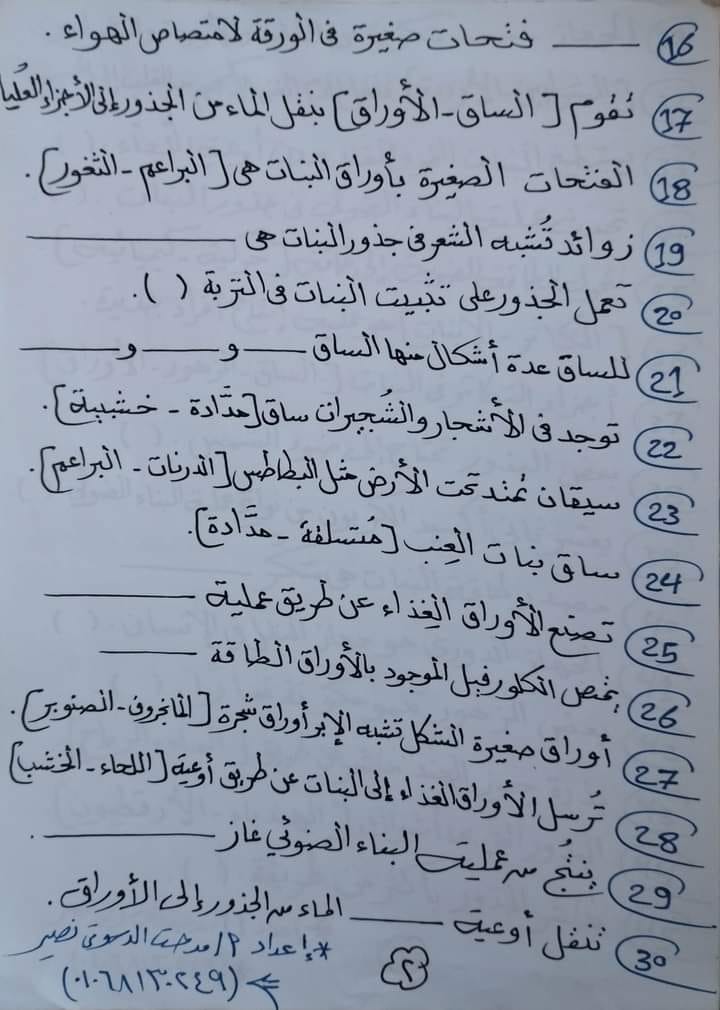 (16) ــــــــ فتحات صغيرة فى الورقة لامتصاص الهواء .
(17) تقوم [الساق - الأوراق] بنقل الماء من الجذور إلى الأجزاء العُليا
(18) الفتحات الصغيرة بأوراق النبات هى [البراعم - الثغور] .
(19) زوائد تُشبه الشعر فى جذور النبات هى ــــــــ
(20) تعمل الجذور على تثبيت النبات فى التربة ( ) .
(21) للساق عدة أشكال منها الساق ــــــــ و ــــــــ و ــــــــ
(22) توجد فى الأشجار والشُجيرات ساق [مدَّادة - خشبية] .
(23) سيقان تمتد تحت الأرض مثل البطاطس [الدرنات - البراعم] .
(24) ساق نبات العِنب [مُتسلقة - مدَّادة] .
(25) تصنع الأوراق الغِذاء عن طريق عملية ــــــــ
(26) يمتص الكلوروفيل الموجود بالأوراق الطاقة ــــــــ
(27) أوراق صغيرة الشكل تشبه الإبر أوراق شجرة [المانجروف - الصنوبر] .
(28) تُرسل الأوراق الغذاء إلى النبات عن طريق أوعية [اللحاء - الخشب]
(29) ينتُج من عملية البناء الضوئي غاز ــــــــ .
(30) تنقل أوعية ــــــــ الماء من الجذور إلى الأوراق .
*إعداد م/ مدحت الدسوقى نصير
(٠١٠٦٨١٣٠٢٤٩)
٢